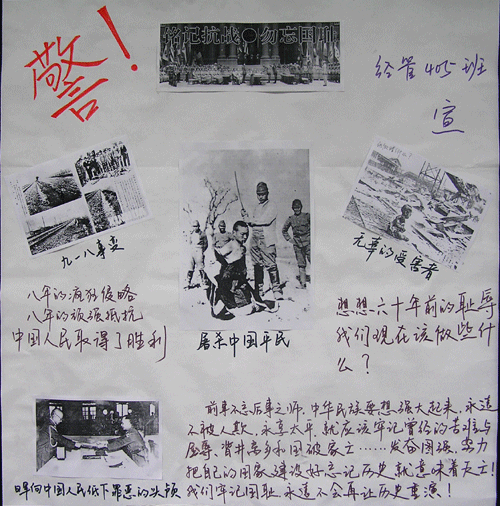 警！
言
铭记抗战 勿忘国耻
经管405班
宣
九一八事变
屠杀中国平民
无辜的受害者
八年的疯狂侵略
八年的顽强抵抗
中国人民取得了胜利
想想六十年前的耻辱
我们现在该做些什
么？
日军向中国人民低下罪恶的头颅
前事不忘后事之师，中华民族要想强大起来，永远
不被人欺，永享太平，就应该牢记曾经的苦难与
屈辱，背井离乡和国破家亡……发奋图强，努力
把自己的国家建设好忘记历史就意味着灭亡！
我们牢记国耻，永远不会再让历史重演！